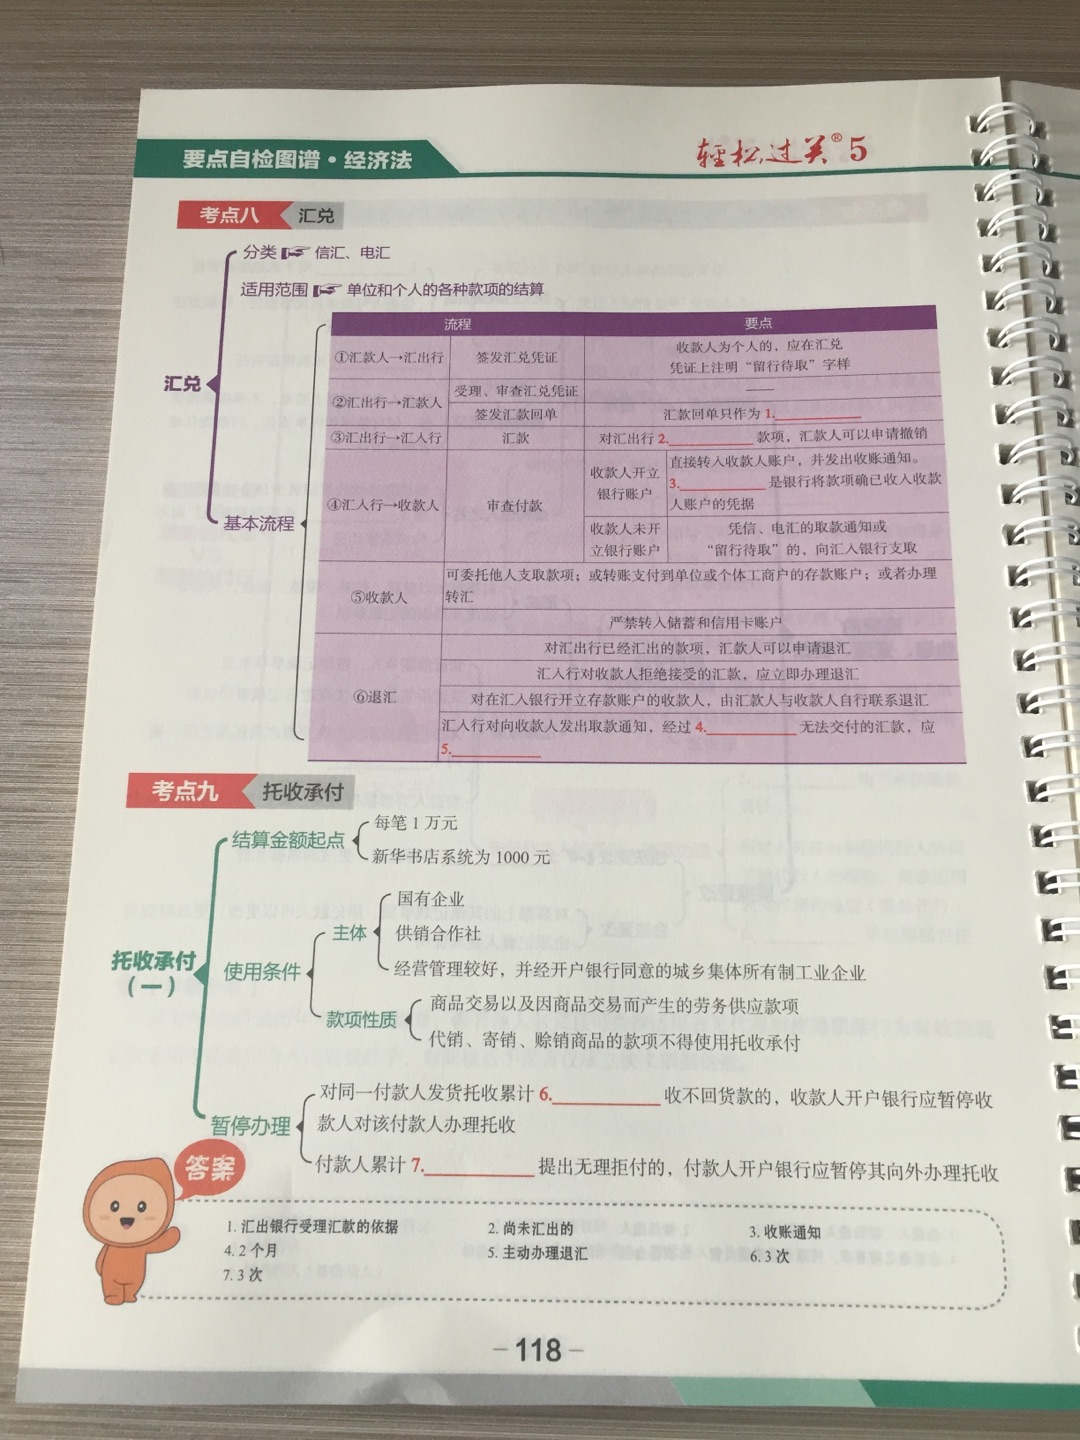 要点自检图谱·经济法
轻松过关®5
考点八 汇兑
汇兑
分类 信汇、电汇
适用范围 单位和个人的各种款项的结算
基本流程
流程 要点
①汇款人→汇出行 签发汇兑凭证 收款人为个人的，应在汇兑
凭证上注明“留行待取”字样
②汇出行→汇款人 受理、审查汇兑凭证 ——
签发汇款回单 汇款回单只作为 1.__________
③汇出行→汇入行 汇款 对汇出行 2.__________ 款项，汇款人可以申请撤销
④汇入行→收款人 审查付款
收款人开立
银行账户
直接转入收款人账户，并发出收账通知。
3.__________ 是银行将款项确已收入收款
人账户的凭据
收款人未开
立银行账户
凭信、电汇的取款通知或
“留行待取”的，向汇入银行支取
⑤收款人
可委托他人支取款项；或转账支付到单位或个体工商户的存款账户；或者办理
转汇
严禁转入储蓄和信用卡账户
⑥退汇
对汇出行已经汇出的款项，汇款人可以申请退汇
汇入行对收款人拒绝接受的汇款，应立即办理退汇
对在汇入银行开立存款账户的收款人，由汇款人与收款人自行联系退汇
汇入行对向收款人发出取款通知，经过 4.__________ 无法交付的汇款，应
5.__________
考点九 托收承付
托收承付
（一）
结算金额起点
每笔 1 万元
新华书店系统为 1000 元
使用条件
主体
国有企业
供销合作社
经营管理较好，并经开户银行同意的城乡集体所有制工业企业
款项性质
商品交易以及因商品交易而产生的劳务供应款项
代销、寄销、赊销商品的款项不得使用托收承付
暂停办理
对同一付款人发货托收累计 6.__________ 收不回货款的，收款人开户银行应暂停收
款人对该付款人办理托收
付款人累计 7.__________ 提出无理拒付的，付款人开户银行应暂停其向外办理托收
答案
1. 汇出银行受理汇款的依据 2. 尚未汇出的 3. 收账通知
4. 2 个月 5. 主动办理退汇 6. 3 次
7. 3 次
－118－